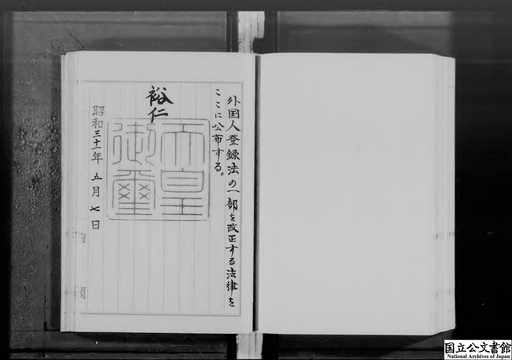 外国人登録法の一部を改正する法律を
ここに公布する。
裕仁
天皇
御璽
昭和三十一年 五月 七日
国立公文書館
National Archives of Japan